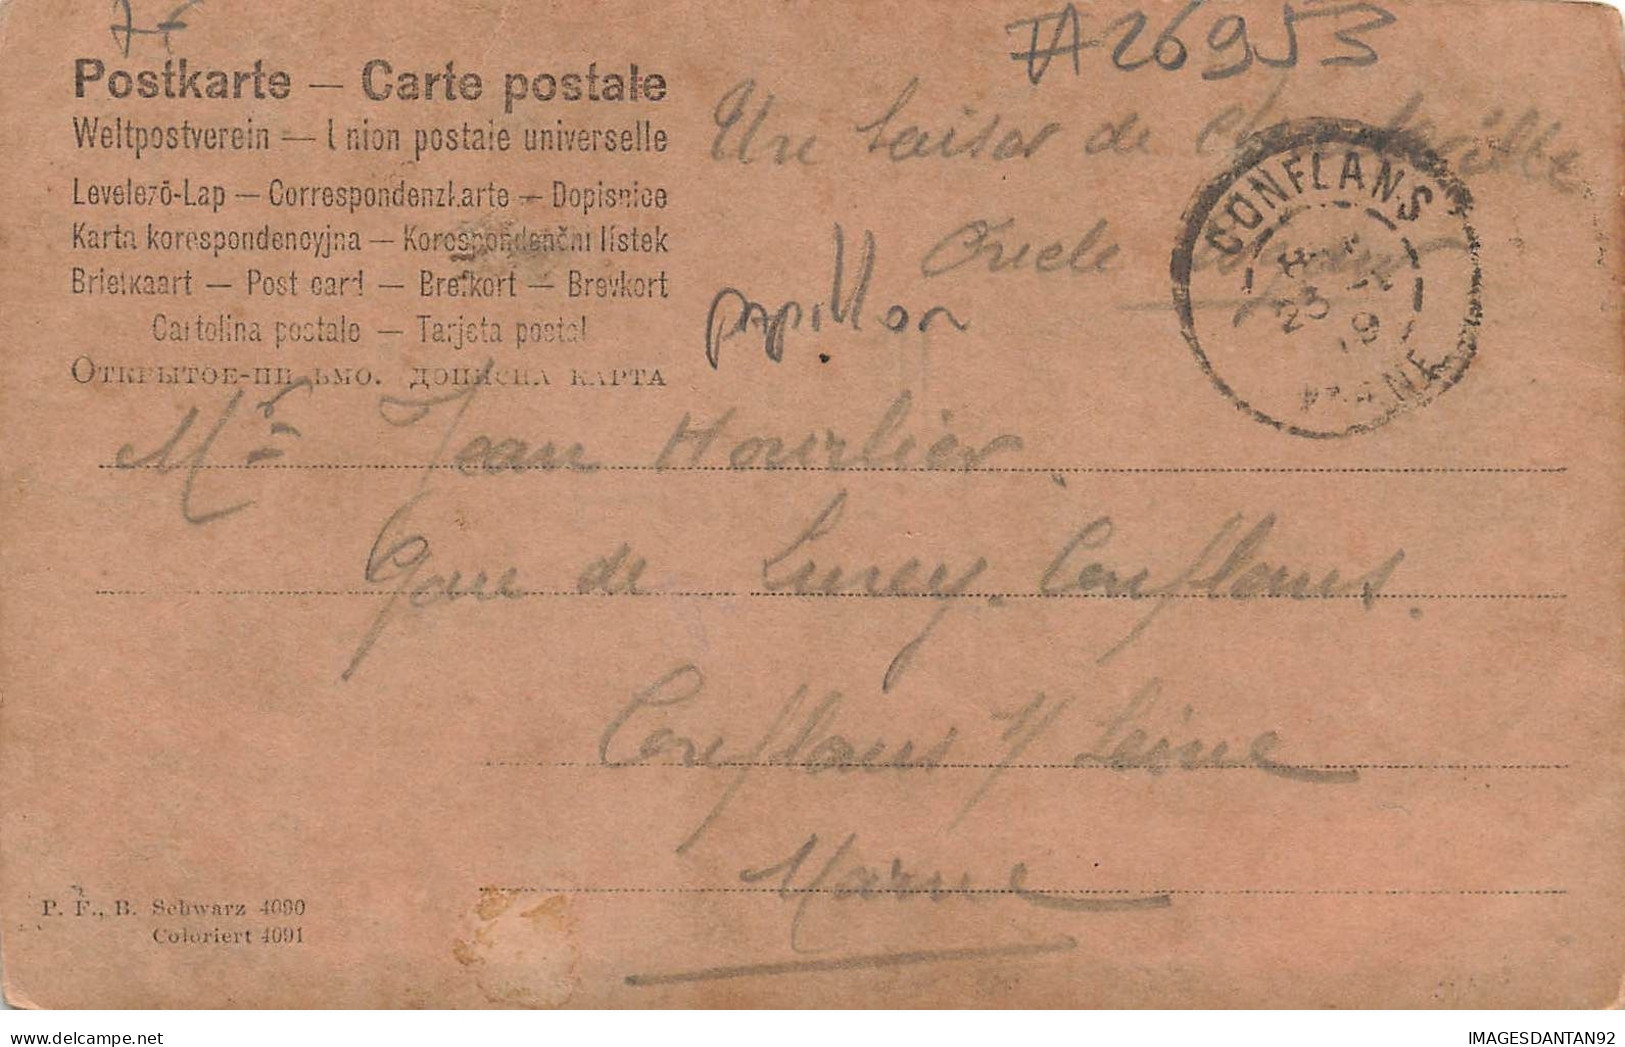 77
TA 26953
Postkarte — Carte postale
Weltpostverein — Union postale universelle
Levelező-Lap — Correspondenzkarte — Dopisnice
Karta korespondencyjna — Korespondenční lístek
Briefkaart — Post card — Brefkort — Brevkort
Cartolina postale — Tarjeta postal
ОТКРЫТОЕ-ПИСЬМО. ДОПИСНА КАРТА
Un baiser de
Oncle
papillon
CONFLANS
23
MARNE
Mr Jean Hourlier
Gare de Lurey-Conflans.
Conflans s/ Seine
Marne
P. F., B. Schwarz 4090
Coloriert 4091
IMAGESDANTAN92